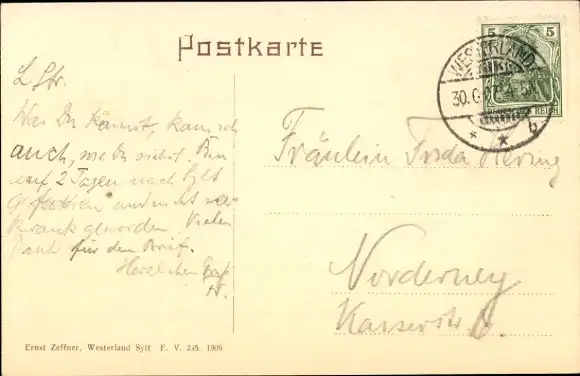 Postkarte
5 5
WESTERLAND
30.6.07
DEUTSCHES REICH
b
L
Was Du kannst, kann ich
auch, wie Du siehst. Bin
auf 2 Tagen nach Sylt
gefahren und nicht
krank geworden. Vielen
Dank für den Brief.
Herzlichen
Fräulein Frida Hering
Norderney
Kaiserstr.
Ernst Zeffner, Westerland Sylt F. V. 245. 1906